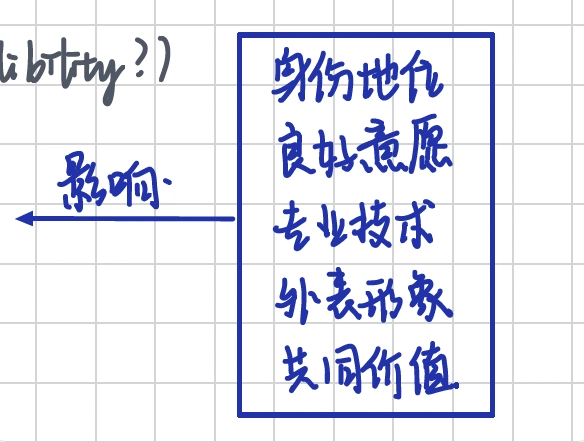 libility?)
身份地位
良好意愿
影响
专业技术
外表形象
共同价值